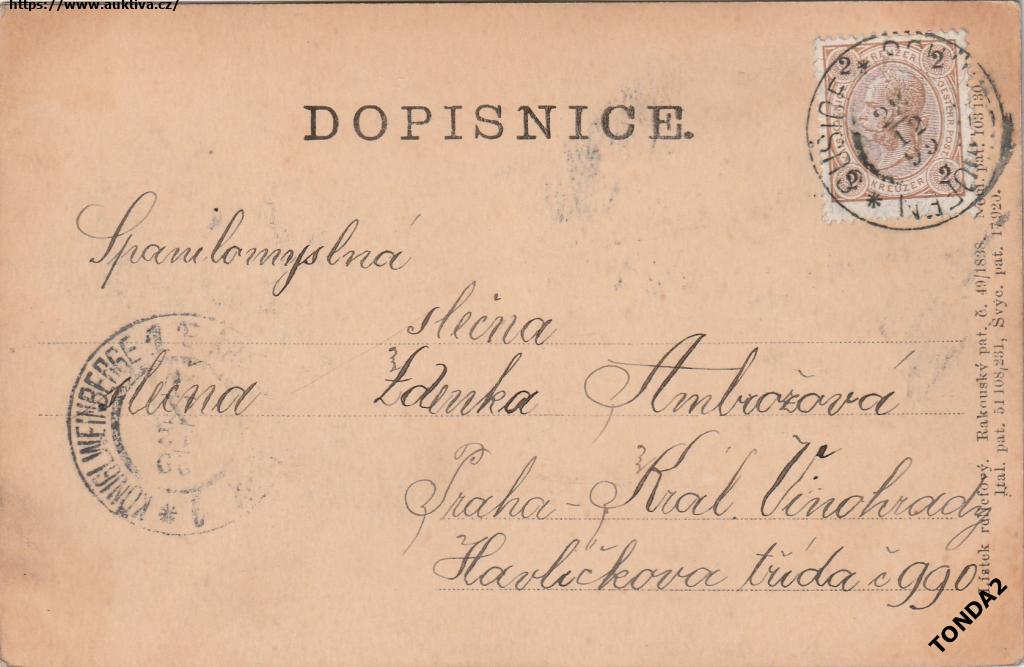 https://www.auktiva.cz/
DOPISNICE.
2 KREUZER 2
OESTERR. POST
2 KREUZER 2
12
Spanilomyslná
slečna
slečna Zdenka Ambrožová
Praha - Král. Vinohrady
Havlíčkova třída č 990
KÖNIGL. WEINBERGE 1
1
Lístek rukopisný. Rakouský pat. č. 49/1838. Něm. pat. 103/130.
Ital. pat. 51108/231, Švýc. pat. 17.920.
TONDA2